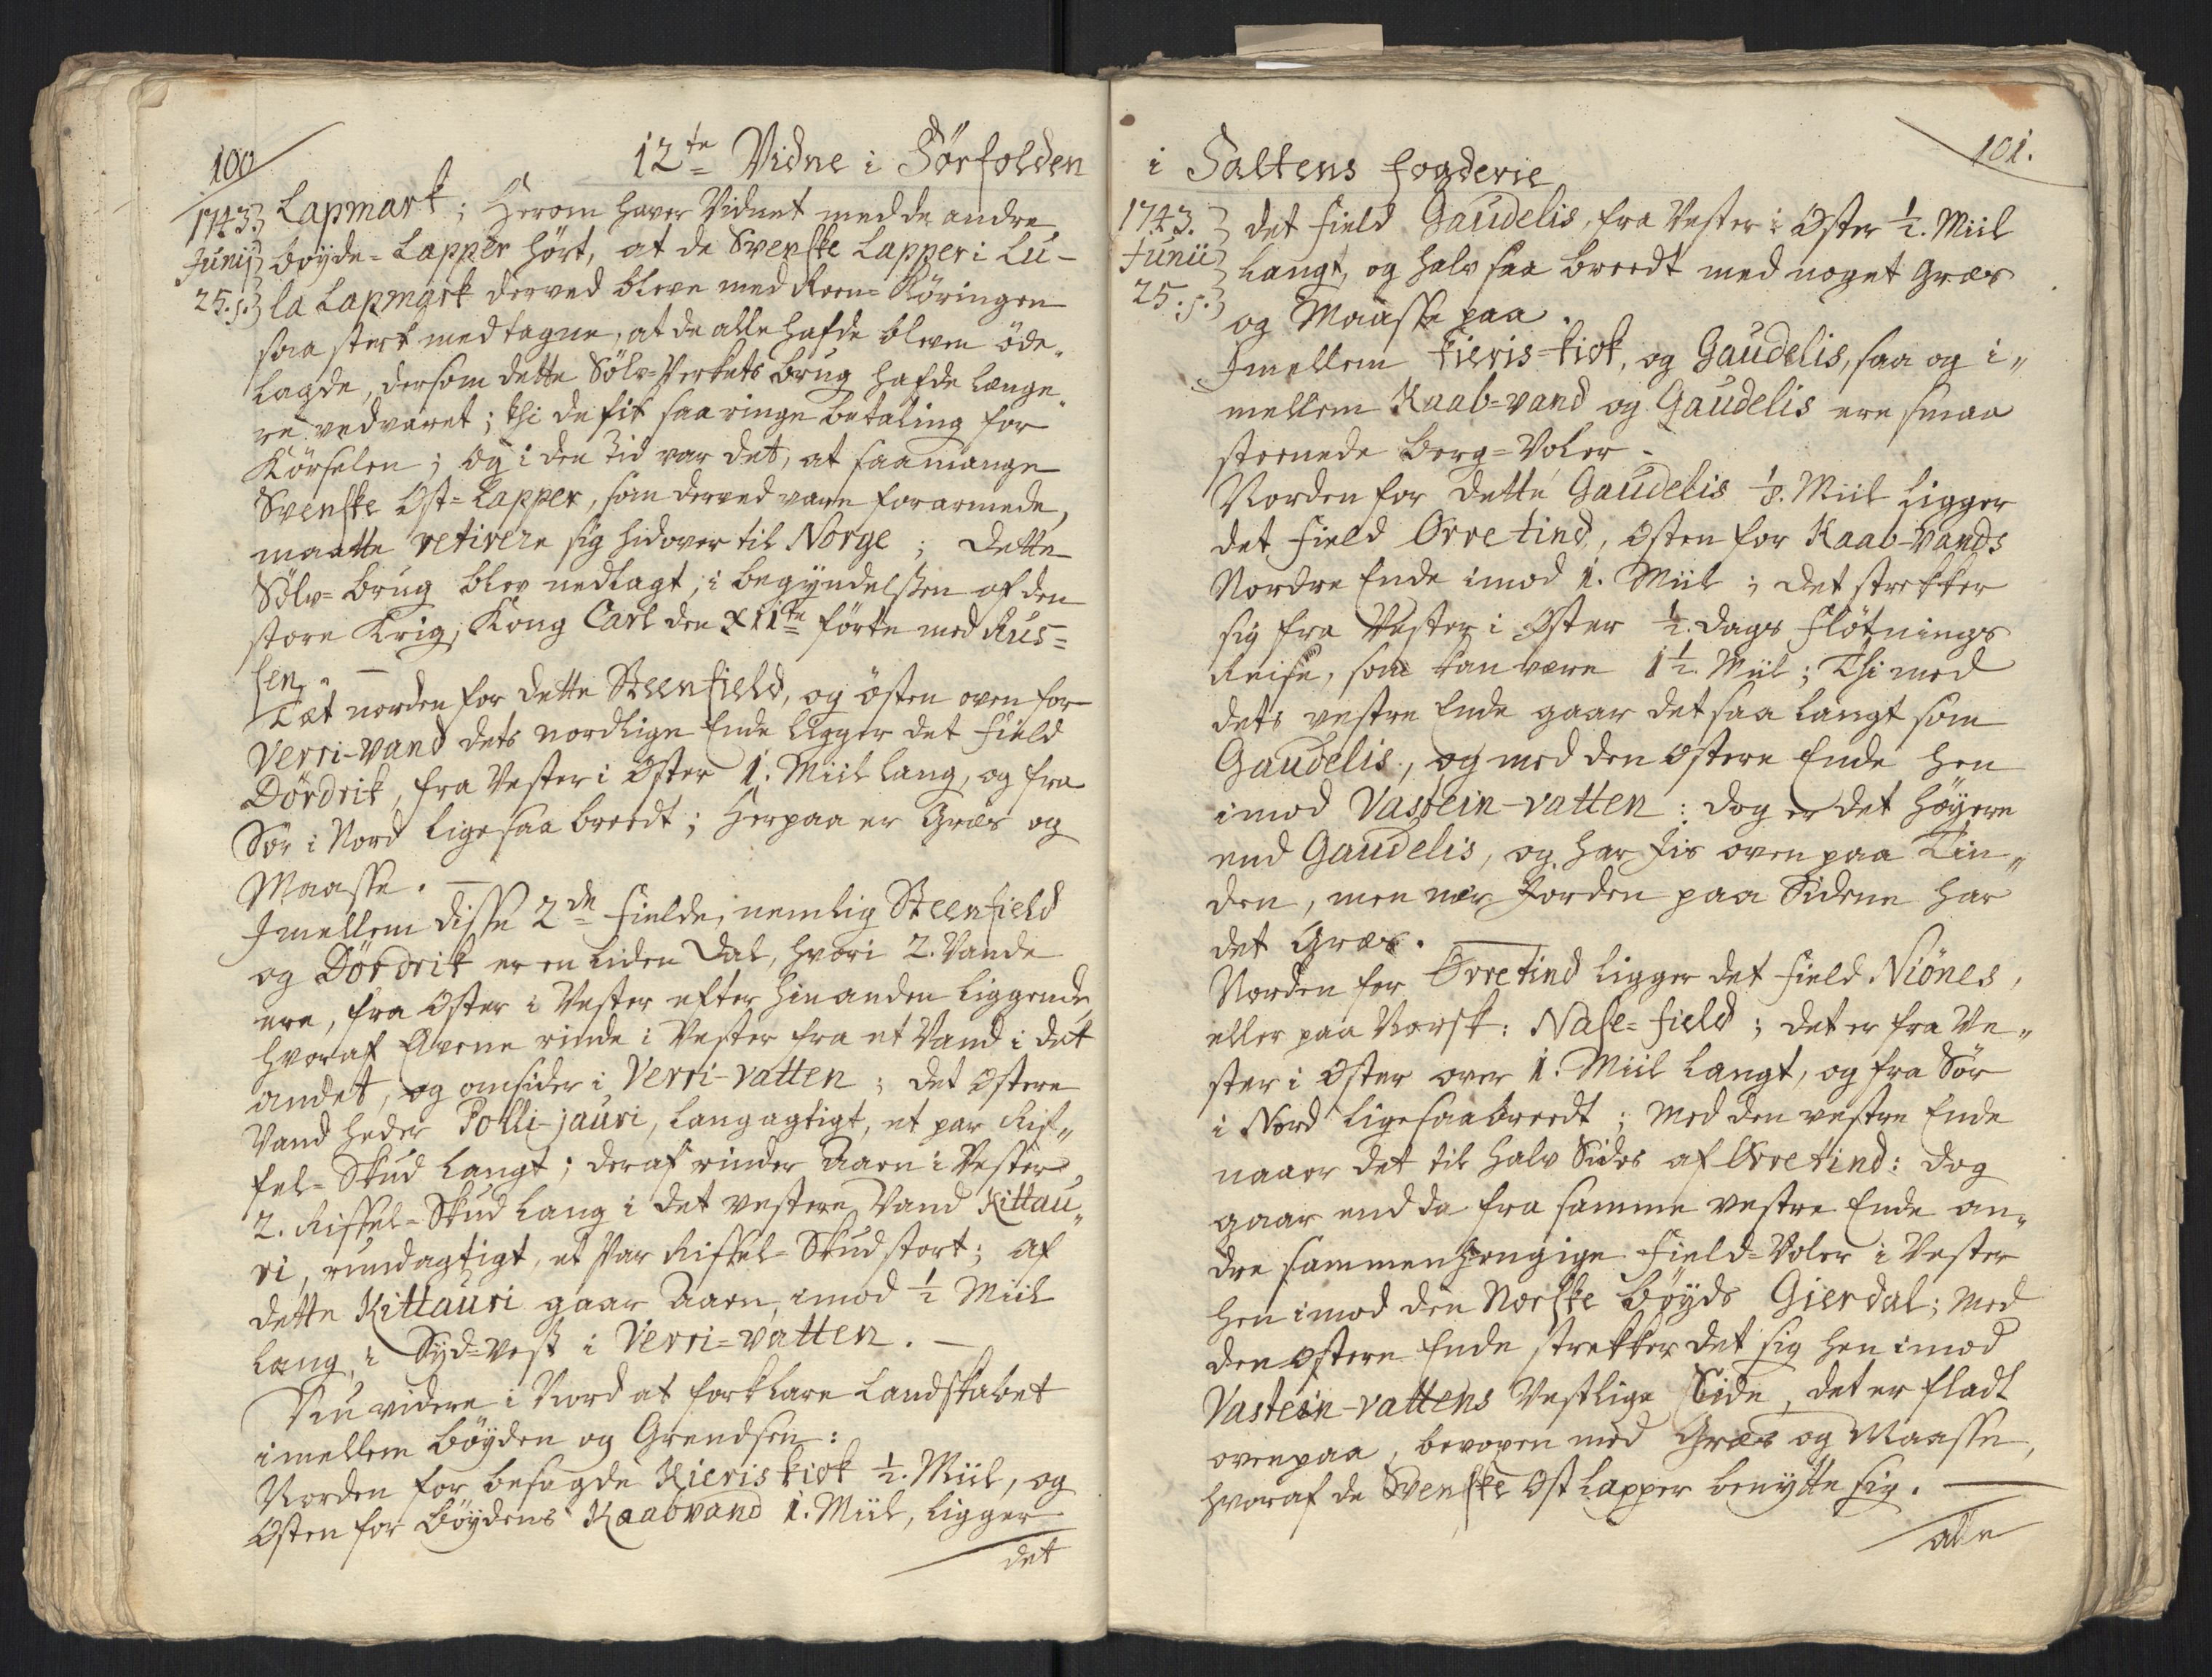 100
12te Vidne i Sörfolden
1743. Lapmark; Herom haver Vidnet med de andre
Junij böyde-Lapper hört, at de Svenske Lapper i Lu-
25. s. la Lapmark derved bleve med Reen-Köringen
saa sterk medtagne, at de alle hafde bleven öde„
lagde, dersom dette Sölv-Verkets Brug hafde længe„
re vedvaret; thi de fik saa ringe betaling for
Körselen; og i den tid var det, at saa mange
Svenske Ost-Lapper, som derved vare forarmede,
maatte retirere sig hidover til Norge; dette
Sölv-brug blev nedlagt, i begyndelsen af den
store Krig, Kong Carl den XIIte förte med Rus-
sen. —
Tæt norden for dette Steenfield, og östen oven for
Verri-vand dets nordlige Ende ligger det Field
Dördrik, fra Vester i Öster 1. Miil lang, og fra
Sör i Nord lige saa breedt; Herpaa er Græs og
Maasse. —
Imellem disse 2de Fielde, nemlig Steenfield
og Dördrik er en liden Dal, hvori 2. Vande
ere, fra Öster i Vester efter hinanden liggende,
hvoraf Elvene rinde i Vester fra et Vand i det
andet, og omsider i Verri-vatten; det Östere
Vand heder Polli-jauri, langagtigt, et par Rif„
fel-Skud langt; deraf rinder Aaen i Vester,
2. Riffel-Skud lang i det vestere Vand Kittau„
ri, rundagtigt, et Par Riffel-Skud stort; af
dette Kittauri gaar Aaen, imod ½ Miil
lang, i Syd-Vest i Verri-vatten. —
Nu videre i Nord at forklare Landskabet
imellem böyden og Grendsen:
Norden for besagde Kieriskiok ½. Miil, og
Östen for böydens Kaabvand 1. Miil, ligger
det
101.
i Saltens fogderie
1743. det Field Gaudelis, fra Vester i Öster ½. Miil
Junii langt, og halv saa breedt med noget Græs
25. s. og Maasse paa.
Imellem Kieris-kiok, og Gaudelis, saa og i„
mellem Kaab-vand og Gaudelis ere smaa
steenede berg-Voler.
Norden for dette Gaudelis ⅛. Miil ligger
det Field Örretind, Östen for Kaab-Vands
Nordre Ende imod 1. Miil; det strekker
sig fra Vester i Öster ½. dags Flötnings
Reise, som kan være 1½. Miil; Thi med
dets vestre Ende gaar det saa langt som
Gaudelis, og med den Östere Ende hen
imod Vastein-vatten: dog er det höyere
end Gaudelis, og har Jis oven paa Tin„
den, men nær Jorden paa Sidene har
det Græs. —
Norden for Örretind ligger det Field Niönes,
eller paa Norsk: Nase-field; det er fra Ve„
ster i Öster over 1. Miil langt, og fra Sör
i Nord lige saa breedt; Med den vestre Ende
naaer det til halv Sides af Örretind: dog
gaar endda fra samme vestre Ende an„
dre sammenhengige Field-Voler i Vester
hen imod den Norske böyds Gierdal; Med
den Östere Ende strekker det sig hen imod
Vastein-vattens Vestlige Side, det er fladt
ovenpaa, bevoxen med Græs og Maasse,
hvoraf de Svenske Öst Lapper benytte sig. —
alle